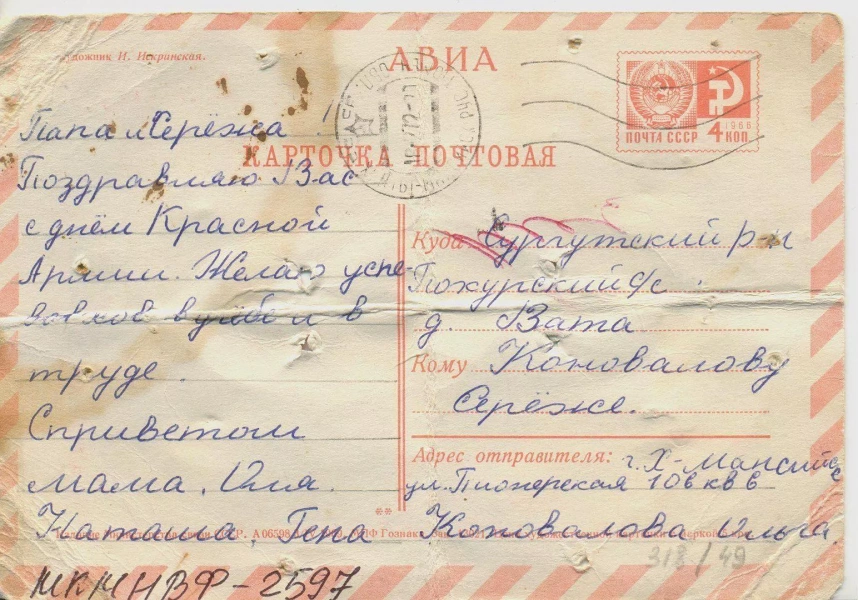 Художник И. Искринская.
АВИА
1966
ПОЧТА СССР 4 КОП
КАРТОЧКА ПОЧТОВАЯ
Папа и Серёжа
Поздравляю Вас
с днём Красной
Армии. Желаю успе-
хов в учёбе и в
труде.
Сприветом
мама. Оля.
Наташа. Гена
Куда Сургутский р-н
Покурский с/с
д. Вата
Кому Коновалову
Серёже.
Адрес отправителя: г. Х-Мансийс
ул. Пионерская 10в кв 6
Коновалова Ольга
318/49
МКМНВФ-2597